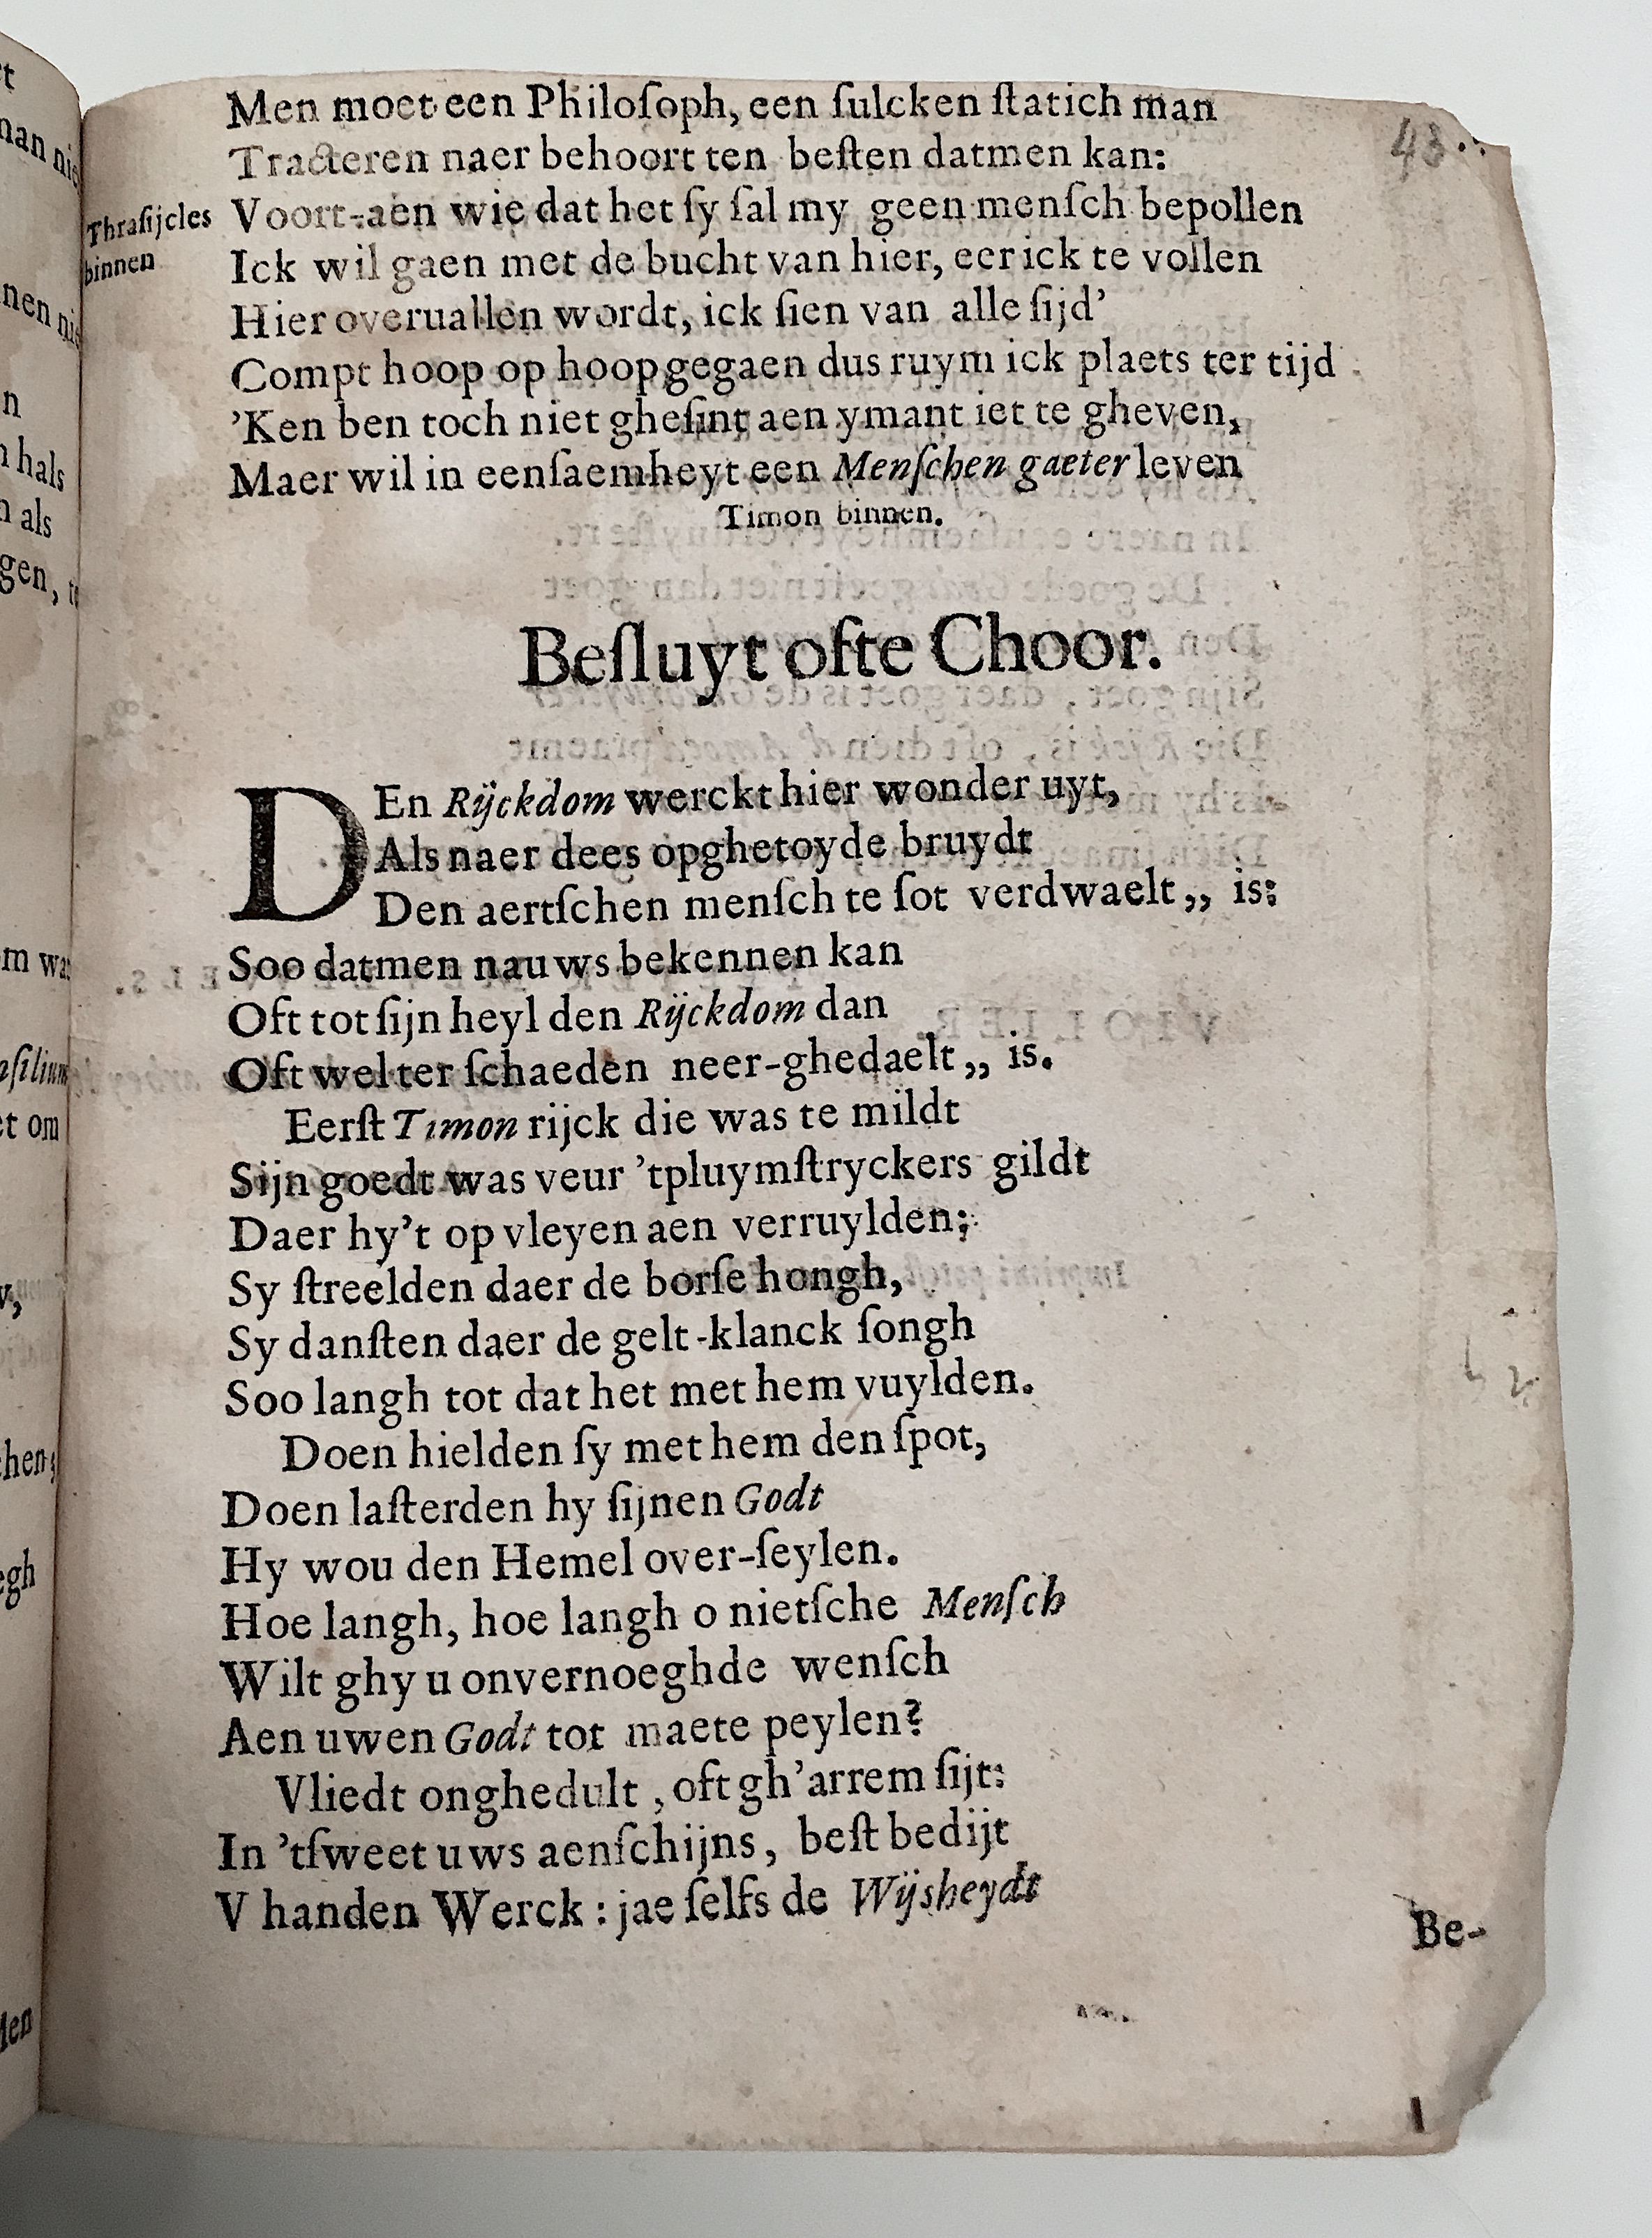 43
Men moet een Philoſoph, een ſulcken ſtatich man
Tracteren naer behoort ten beſten datmen kan:
Thraſijcles
binnen
Voort-aen wie dat het ſy ſal my geen menſch bepollen
Ick wil gaen met de bucht van hier, eer ick te vollen
Hier overuallen wordt, ick ſien van alle ſijd’
Compt hoop op hoop gegaen dus ruym ick plaets ter tijd
’Ken ben toch niet gheſint aen ymant iet te gheven,
Maer wil in eenſaemheyt een Menſchen gaeter leven
Timon binnen.
Beſluyt ofte Choor.
DEn Rijckdom werckt hier wonder uyt,
Als naer dees opghetoyde bruydt
Den aertſchen menſch te ſot verdwaelt „ is:
Soo datmen nauws bekennen kan
Oft tot ſijn heyl den Rijckdom dan
Oft wel ter ſchaeden neer-ghedaelt „ is.
Eerſt Timon rijck die was te mildt
Sijn goedt was veur ’tpluymſtryckers gildt
Daer hy’t op vleyen aen verruylden;
Sy ſtreelden daer de borſe hongh,
Sy danſten daer de gelt-klanck ſongh
Soo langh tot dat het met hem vuylden.
Doen hielden ſy met hem den ſpot,
Doen laſterden hy ſijnen Godt
Hy wou den Hemel over-ſeylen.
Hoe langh, hoe langh o nietſche Menſch
Wilt ghy u onvernoeghde wenſch
Aen uwen Godt tot maete peylen?
Vliedt onghedult, oft gh’arrem ſijt:
In ’tſweet uws aenſchijns, beſt bedijt
V handen Werck: jae ſelfs de Wijsheydt
Be-